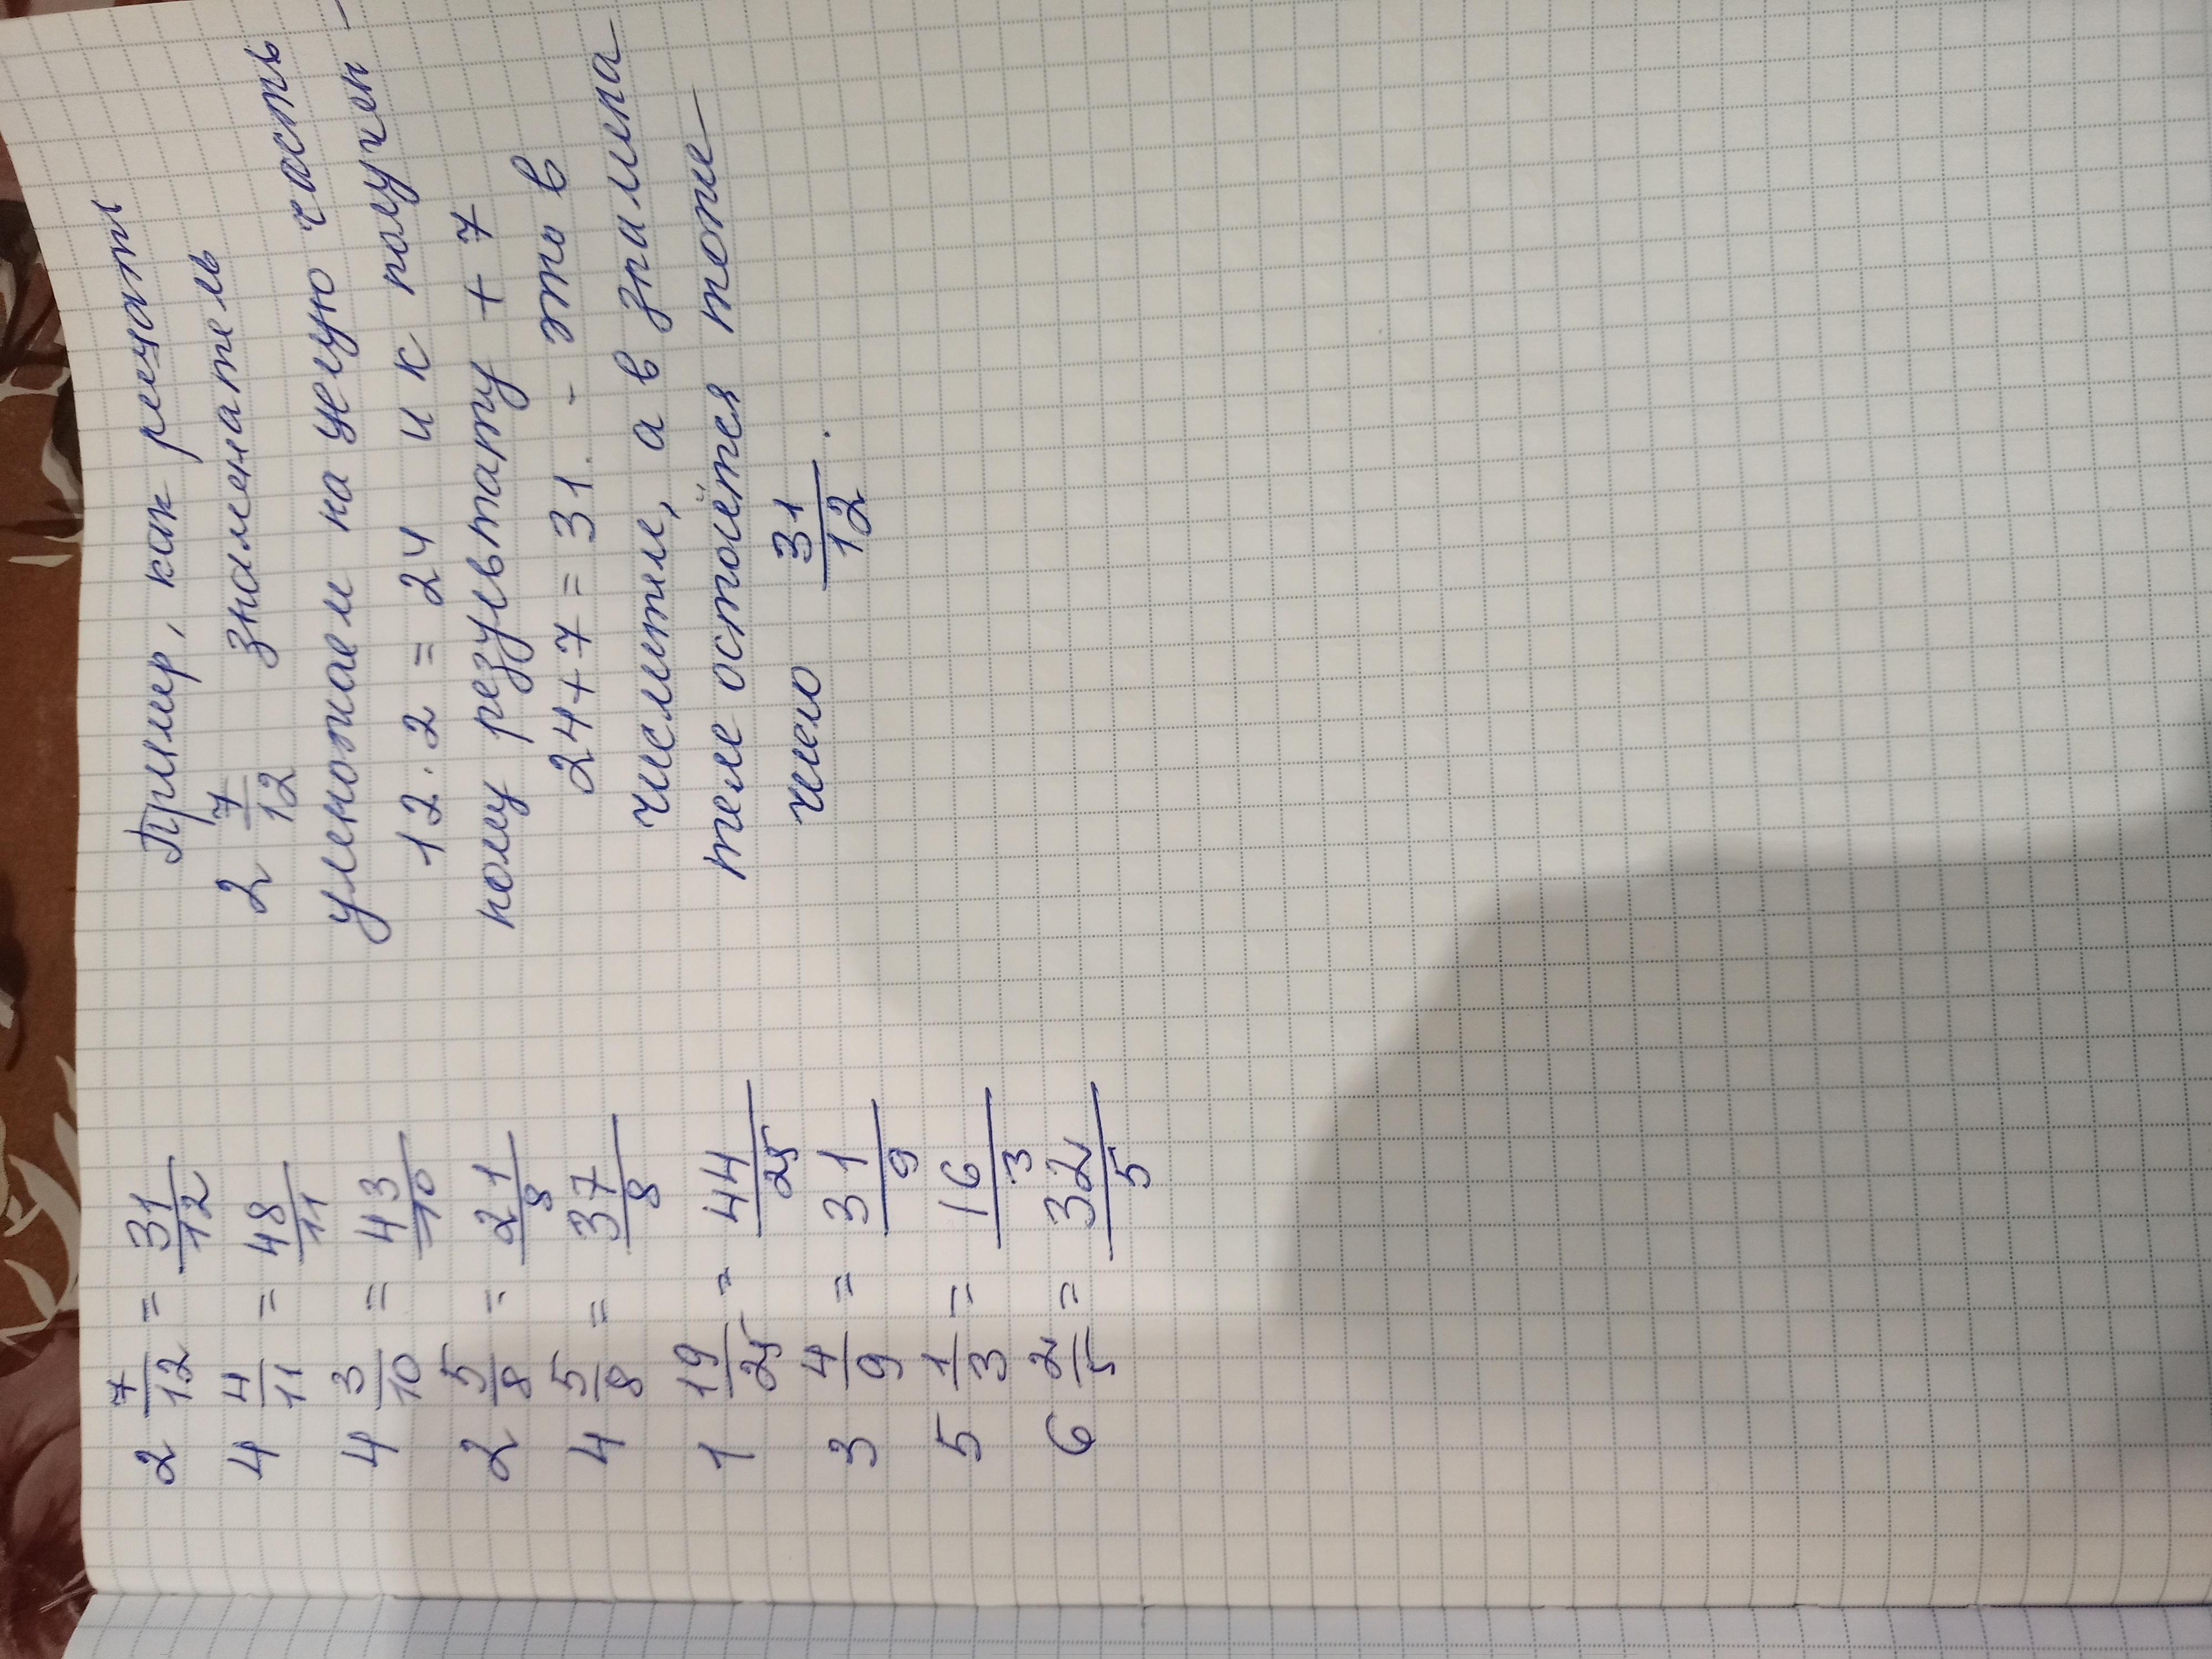 2 7/12 = 31/12
4 4/11 = 48/11
4 3/10 = 43/10
2 5/8 = 21/8
4 5/8 = 37/8
1 19/25 = 44/25
3 4/9 = 31/9
5 1/3 = 16/3
6 2/5 = 32/5
Пример, как решать
2 7/12 знаменатель
умножаем на целую часть
12 · 2 = 24 и к получен-
ному результату + 7
24 + 7 = 31. - это в
числителе, а в знамена-
теле остаётся тоже
число 31/12.